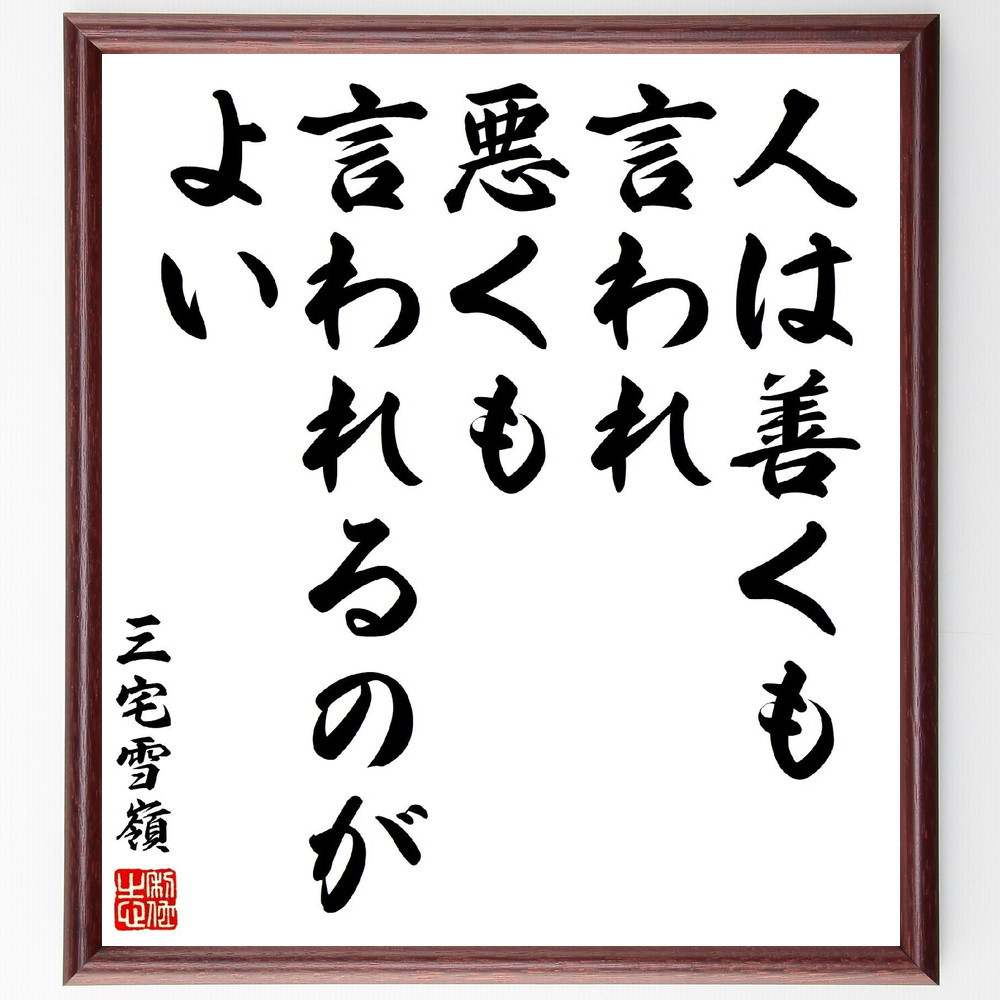 人は善くも
言われ
悪くも
言われるのが
よい
三宅雪嶺